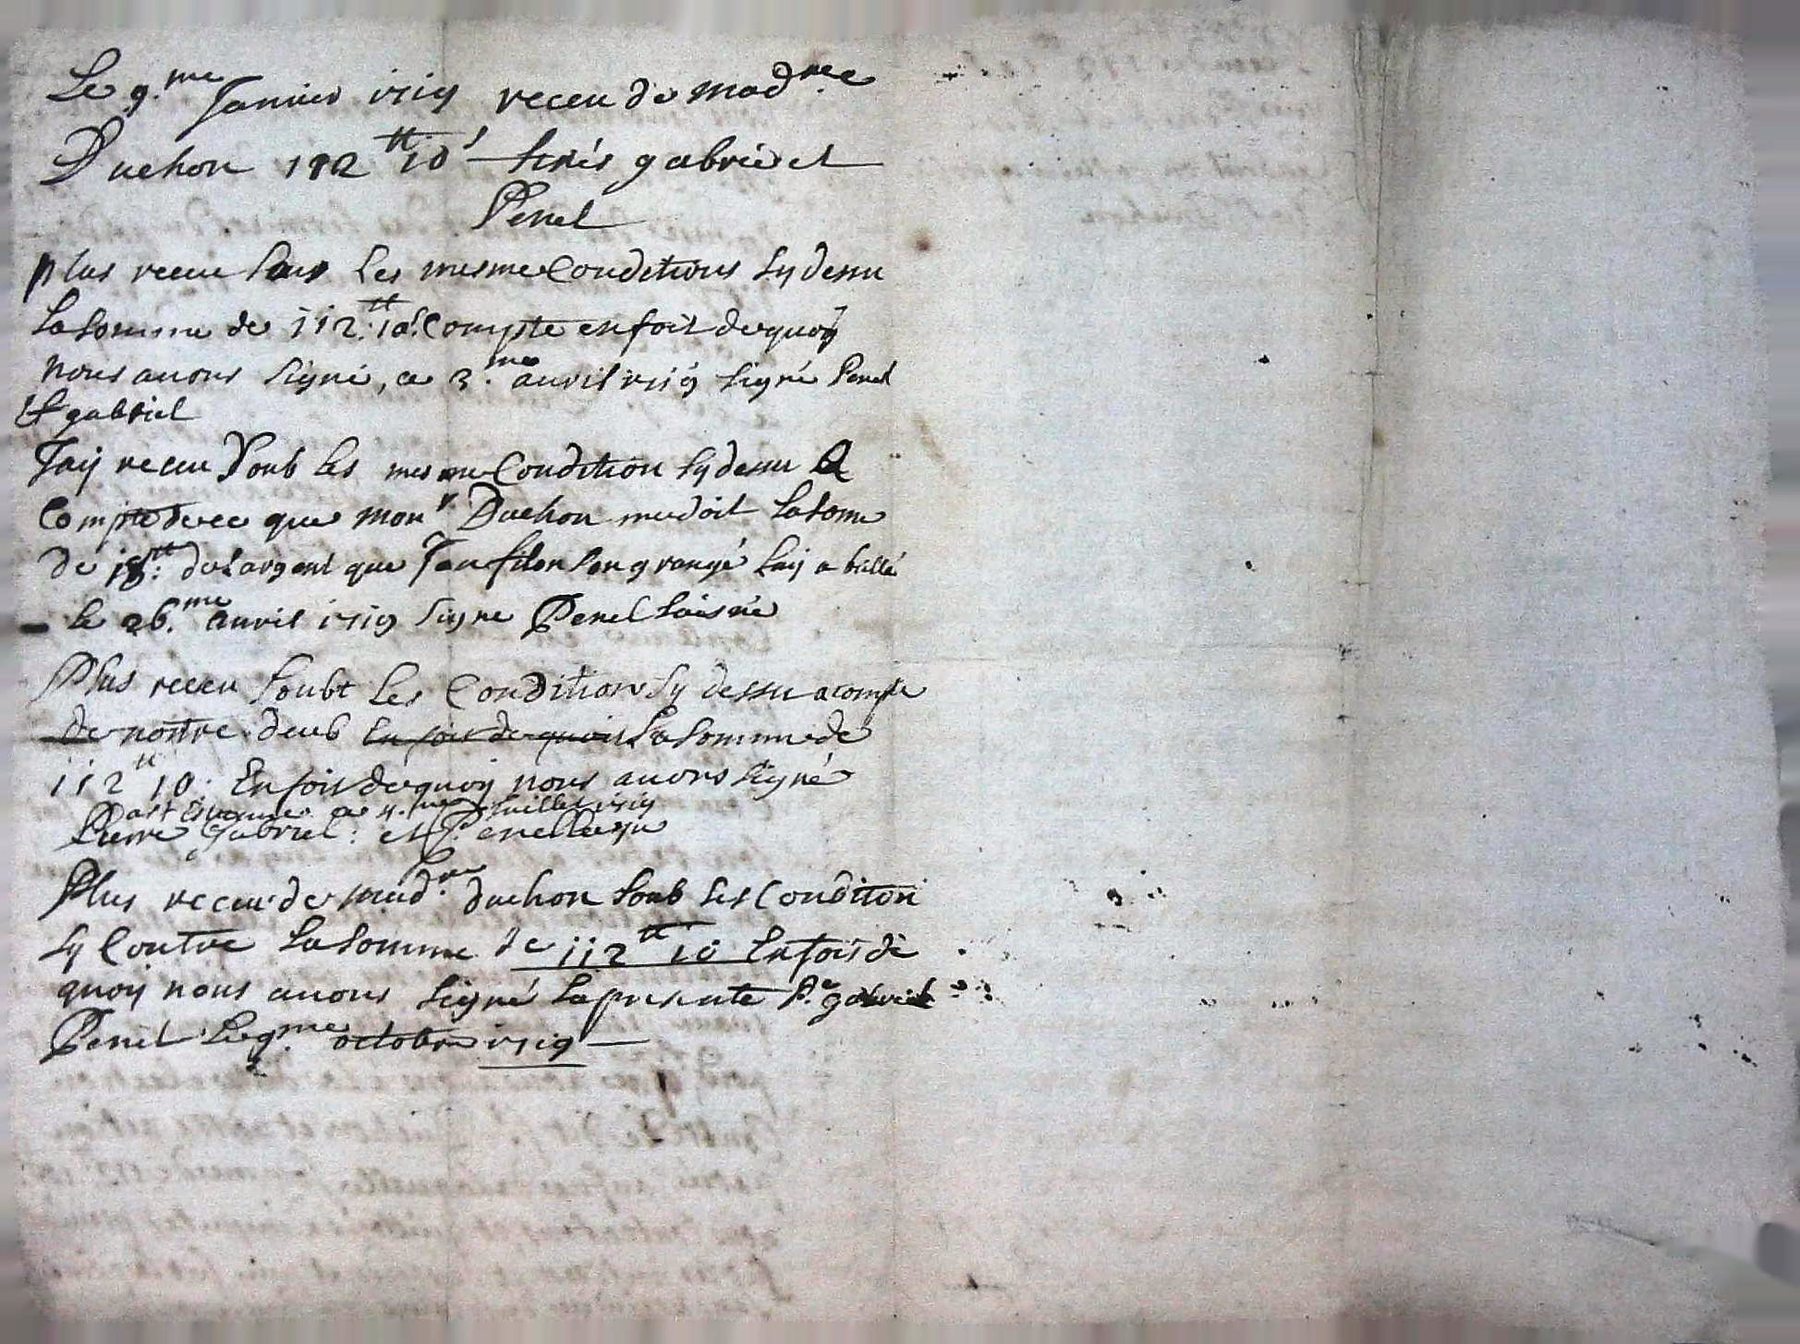 Le 9.me Januier 1719 receu de mad.me
Duchon 112 tt 10 s signés gabriel et
Penel
plus receu sous les mesme Conditions sy dessu
la somme de 112 tt. 10 s. Compte en foit de quoy
nous auons signé, ce 3.me auril 1719 signé Penel
Et gabriel
Jay receu soub les mesme Condition sy dessu A
Compte de ce que mon r Duchon me doit la some
de 18 tt: de largent que
le 26.me auril 1719 signe Penel laisné
Plus receu soubt les Conditions sy dessu a compte
de nostre deub En foit de quoit la somme de
112 tt 10: En foit de quoy nous auons signé
a st Estienne ce 4.me Juillet 1719
Pierre Gabriel: et Penel
Plus receu de mad.me duchon soub les Conditon
sy Contre la somme de 112 tt 10 En foit de
quoy nous auons signé la presente P.e gabriel
Penel Le 9.me octobre 1719